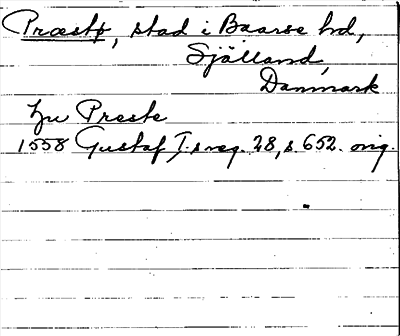 Præstø, stad i Baarse hd,
Själland,
Danmark
zu Preste
1558 Gustaf I:s reg. 28, s. 652. orig.